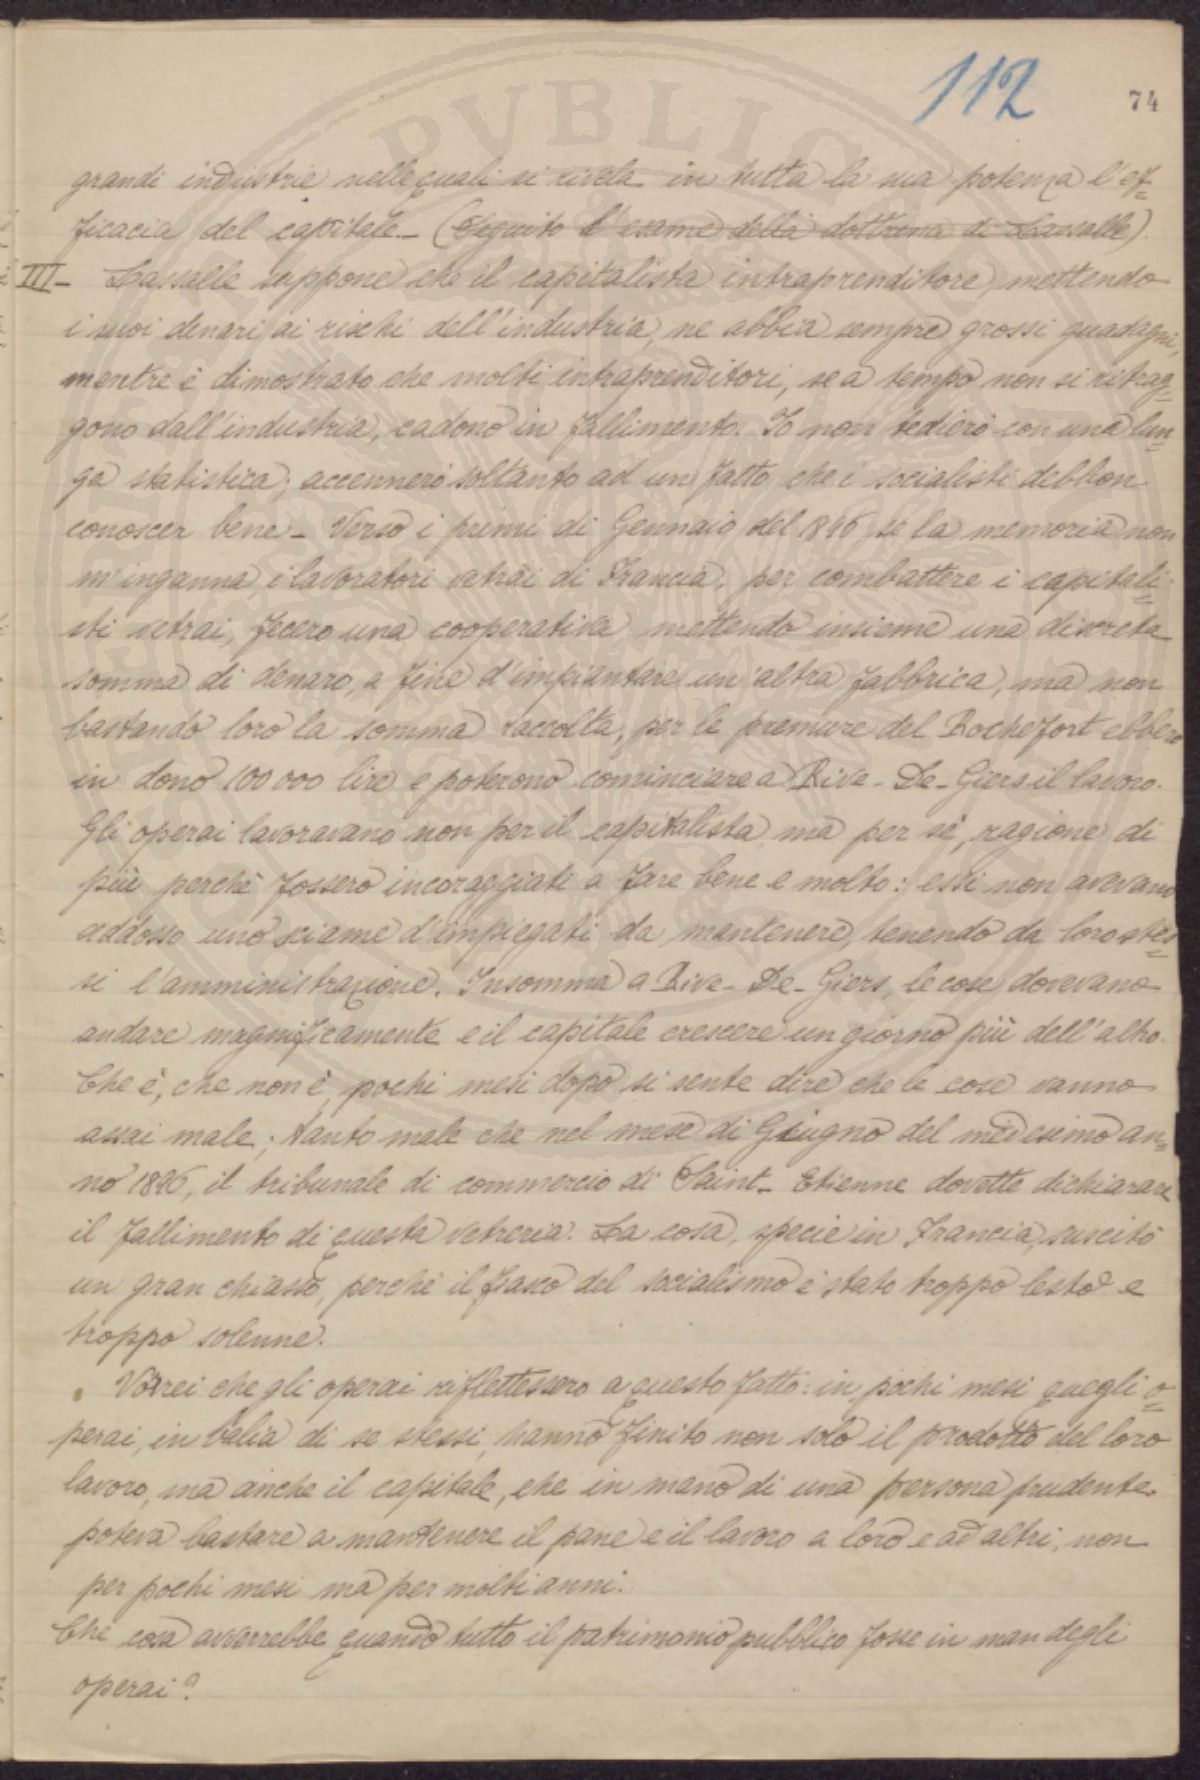 112
74
grandi industrie nelle quali si rivela in tutta la sua potenza l'ef=
ficacia del capitale_ (Seguito l'esame della dottrina di Lassalle).
III_ Lassalle suppone che il capitalista intraprenditore, mettendo
i suoi denari ai rischi dell'industria, ne abbia sempre grossi guadagni,
mentre è dimostrato che molti intraprenditori, se a tempo non si ritrag=
gono dall'industria, cadono in fallimento. Io non tedierò con una lun=
ga statistica; accennerò soltanto ad un fatto che i socialisti debbon
conoscer bene_ Verso i primi di Gennaio del 1896, se la memoria non
m'inganna, i lavoratori vetrai di Francia, per combattere i capitali=
sti vetrai, fecero una cooperativa mettendo insieme una discreta
somma di denaro, a fine d'impiantare un'altra fabbrica, ma non
bastando loro la somma raccolta, per le premure del Rochefort ebbero
in dono 100000 lire e poterono cominciare a Rive_De_Giers il lavoro.
Gli operai lavoravano non per il capitalista, ma per sè, ragione di
più perchè fossero incoraggiati a fare bene e molto: essi non avevano
addosso uno sciame d'impiegati da mantenere, tenendo da loro stes=
si l'amministrazione. Insomma a Rive_De_Giers, le cose dovevano
andare magnificamente e il capitale crescere un giorno più dell'altro.
Che è, che non è, pochi mesi dopo si sente dire che le cose vanno
assai male; tanto male che nel mese di Giugno del medesimo an=
no 1896, il tribunale di commercio di Saint_Etienne dovette dichiarare
il fallimento di questa vetreria. La cosa, specie in Francia, suscitò
un gran chiasso, perchè il fiasco del socialismo è stato troppo lesto e
troppo solenne.
Vorrei che gli operai riflettessero a questo fatto: in pochi mesi quegli o=
perai, in balìa di se stessi, hanno finito non solo il prodotto del loro
lavoro, ma anche il capitale, che in mano di una persona prudente
poteva bastare a mantenere il pane e il lavoro a loro e ad altri, non
per pochi mesi ma per molti anni.
Che cosa avverrebbe quando tutto il patrimonio pubblico fosse in man degli
operai?